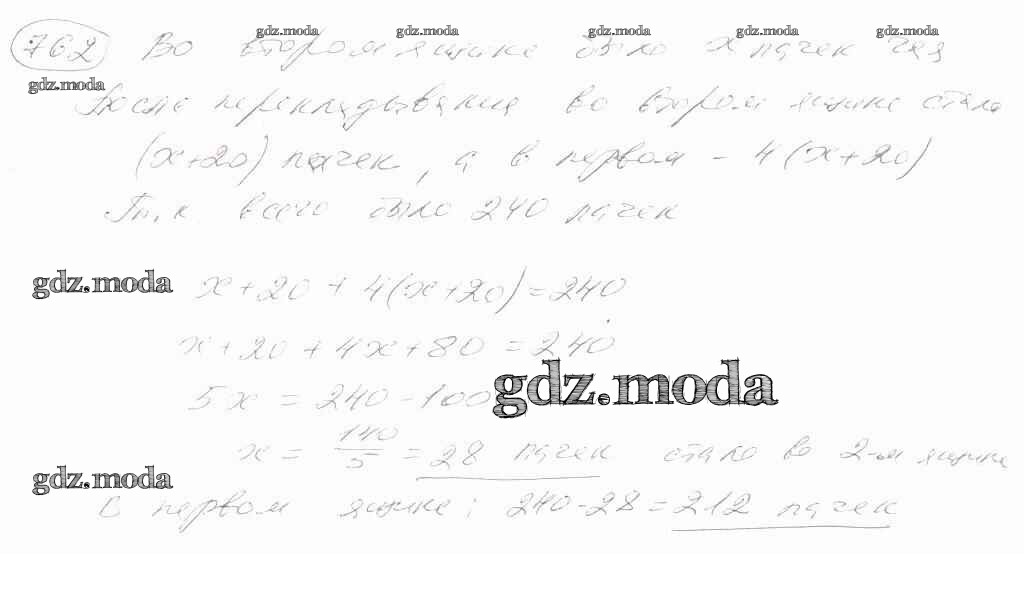 gdz.moda gdz.moda gdz.moda gdz.moda gdz.moda
762 Во втором ящике было x пачек чая
gdz.moda
После перекладывания во втором ящике стало
(x+20) пачек, а в первом - 4(x+20)
Т.к. всего было 240 пачек
gdz.moda
x+20+4(x+20)=240
x+20+4x+80=240
gdz.moda
5x=240-100
x=140/5=28 пачек стало во 2-ом ящике
gdz.moda
В первом ящике: 240-28=212 пачек